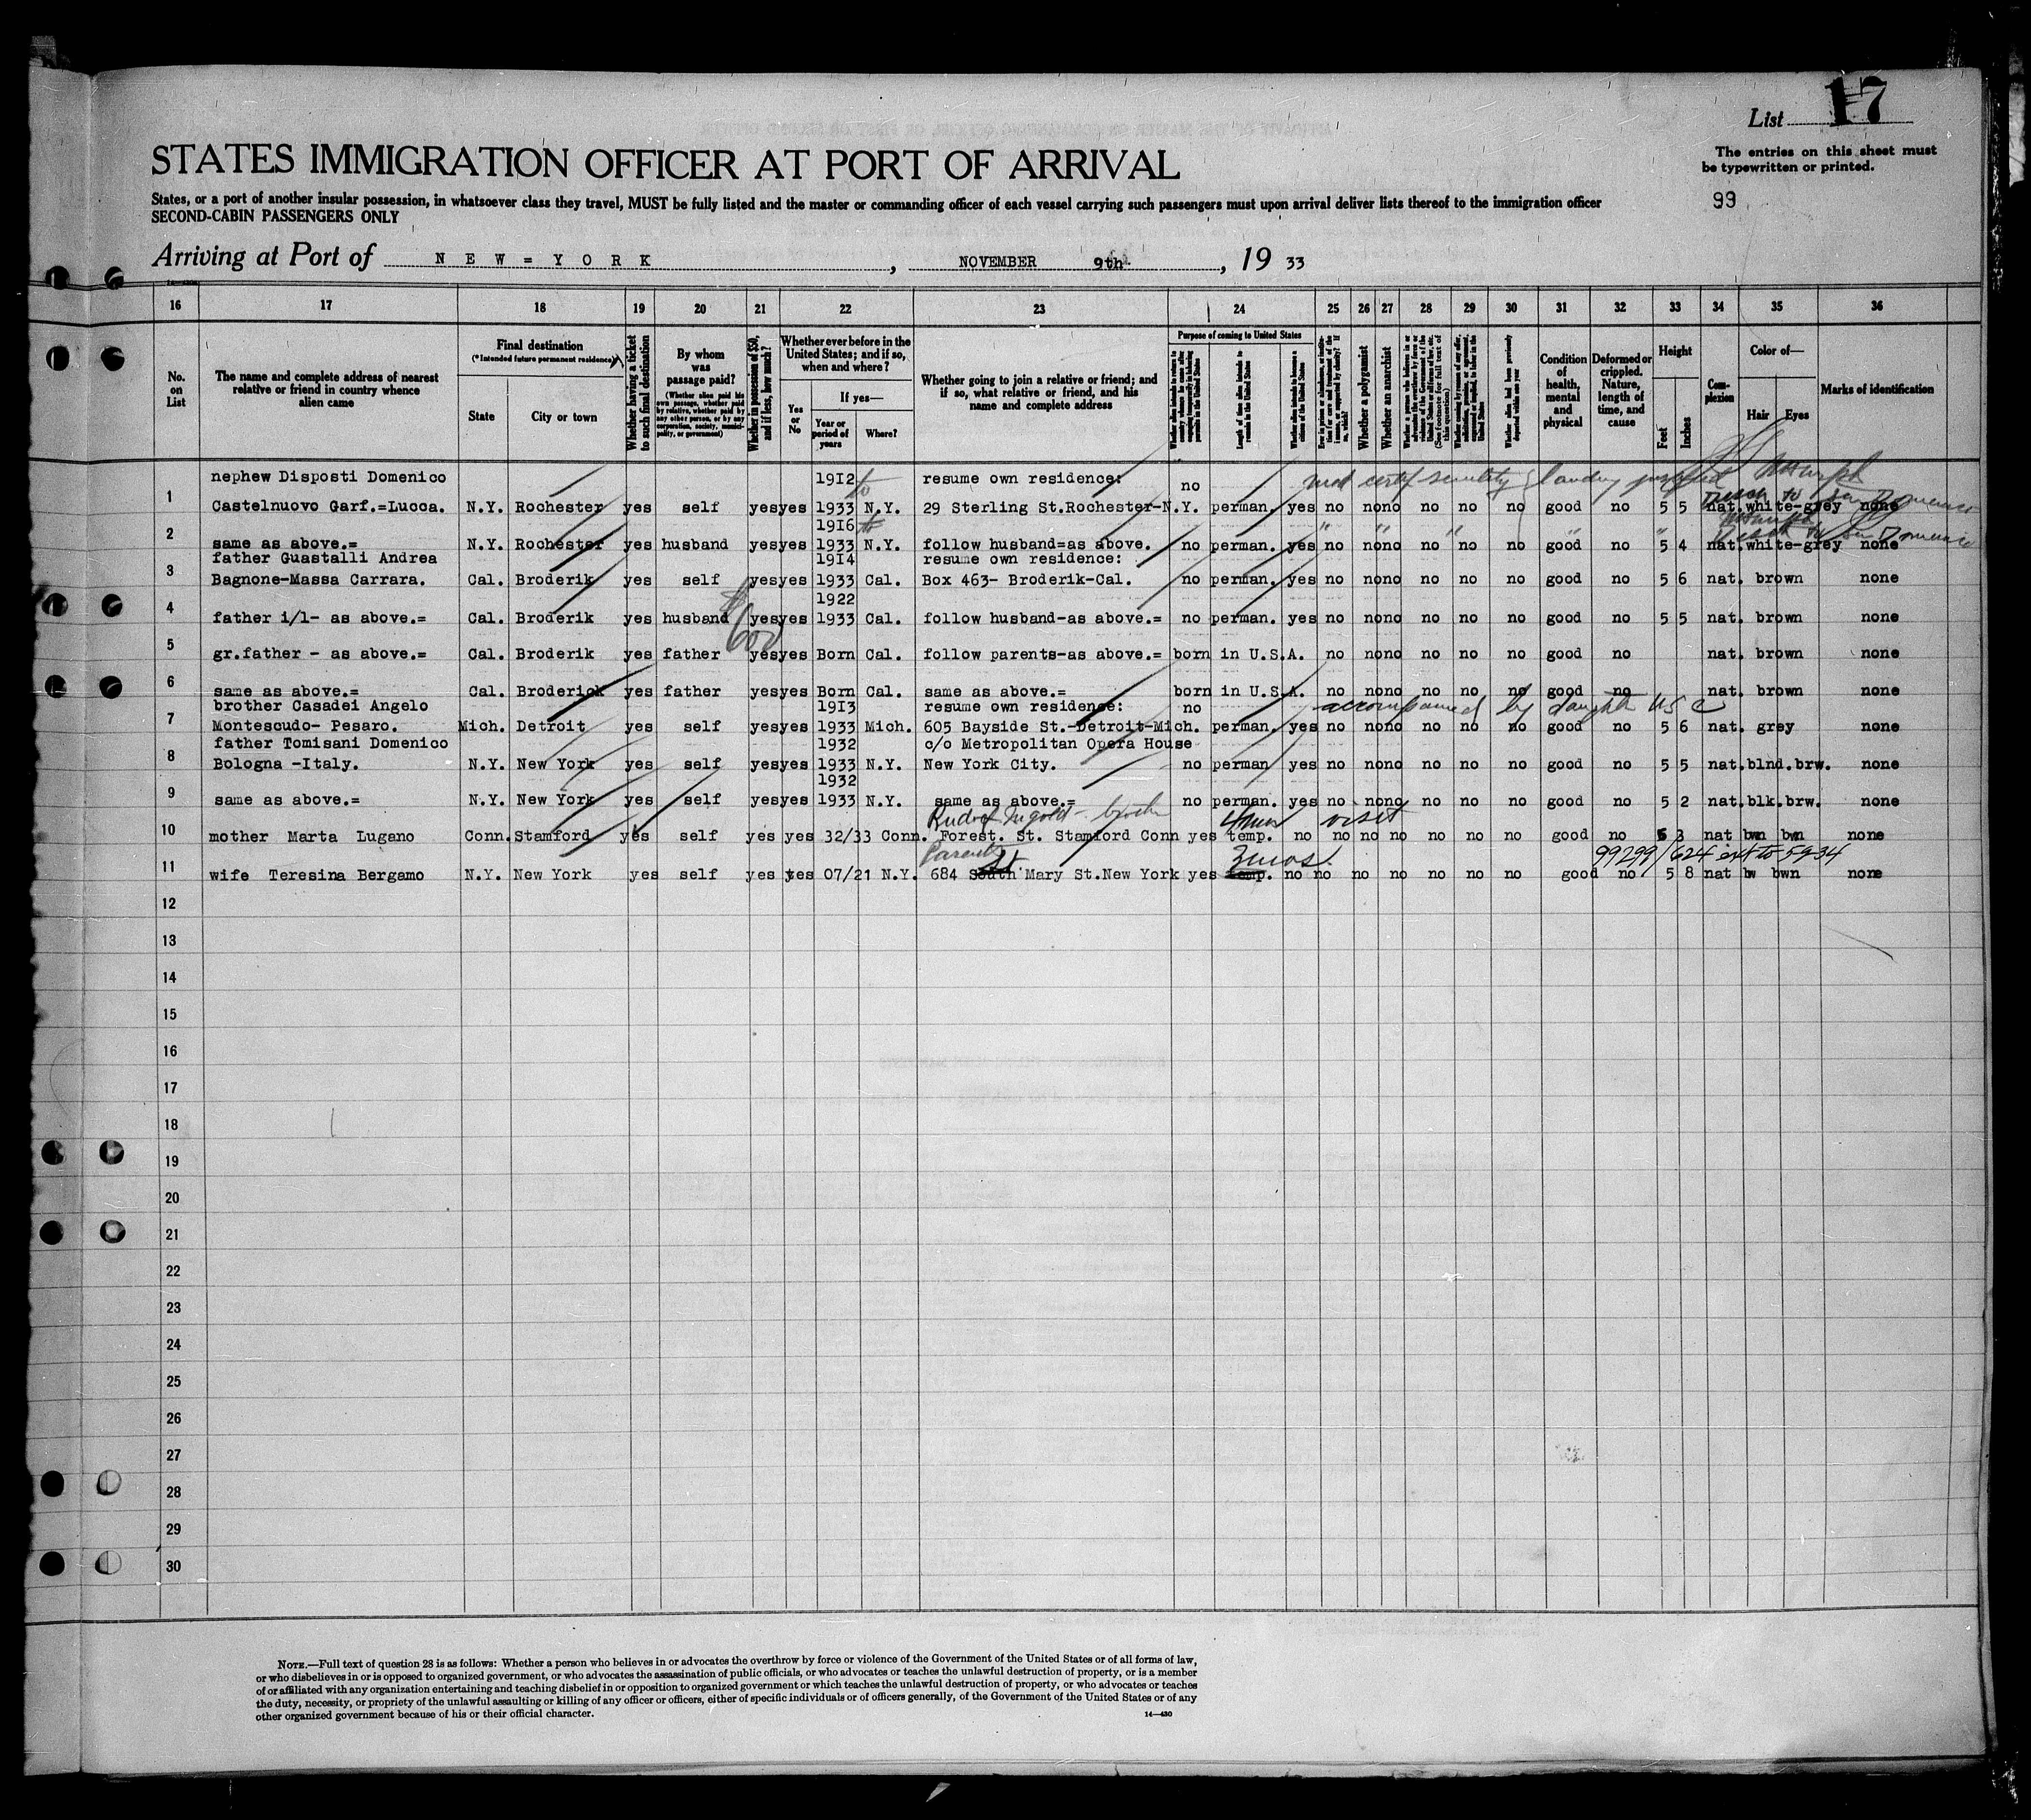 List 17
STATES IMMIGRATION OFFICER AT PORT OF ARRIVAL
The entries on this sheet must
be typewritten or printed.
States, or a port of another insular possession, in whatsoever class they travel, MUST be fully listed and the master or commanding officer of each vessel carrying such passengers must upon arrival deliver lists thereof to the immigration officer
SECOND-CABIN PASSENGERS ONLY
99
Arriving at Port of NEW=YORK, NOVEMBER 9th, 19 33
16 17 18 19 20 21 22 23 24 25 26 27 28 29 30 31 32 33 34 35 36
No. on List
The name and complete address of nearest relative or friend in country whence alien came
Final destination
(*Intended future permanent residence)
State
City or town
Whether having a ticket to such final destination
By whom was passage paid?
(Whether alien paid his own passage, whether paid by relative, whether paid by any other person, or by any corporation, society, municipality, or government)
Whether in possession of $50, and if less, how much?
Whether ever before in the United States; and if so, when and where?
Yes or No
If yes—
Year or period of years
Where?
Whether going to join a relative or friend; and if so, what relative or friend, and his name and complete address
Purpose of coming to United States
Length of time alien intends to remain in the United States
Whether alien intends to become a citizen of the United States
Whether a polygamist
Whether an anarchist
(See footnote for full text of this question)
Whether alien had been previously deported within one year
Condition of health, mental and physical
Deformed or crippled. Nature, length of time, and cause
Height
Feet
Inches
Complexion
Color of—
Hair
Eyes
Marks of identification
nephew Disposti Domenico 1912 to resume own residence: no med certif senility landing
1 Castelnuovo Garf.=Lucca. N.Y. Rochester yes self yes yes 1933 N.Y. 29 Sterling St.Rochester-N.Y. perman. yes no no no no no no good no 5 5 nat. white-grey none
1916 to
2 same as above.= N.Y. Rochester yes husband yes yes 1933 N.Y. follow husband=as above. no perman. yes no no no no no no good no 5 4 nat. white-grey none
father Guastalli Andrea 1914 resume own residence:
3 Bagnone-Massa Carrara. Cal. Broderik yes self yes yes 1933 Cal. Box 463- Broderik-Cal. no perman. yes no no no no no no good no 5 6 nat. brown none
1922
4 father i/l- as above.= Cal. Broderik yes husband yes yes 1933 Cal. follow husband-as above.= no perman. yes no no no no no no good no 5 5 nat. brown none
$600
5 gr.father - as above.= Cal. Broderik yes father yes yes Born Cal. follow parents-as above.= born in U.S.A. no no no no no no good no nat. brown none
6 same as above.= Cal. Broderick yes father yes yes Born Cal. same as above.= born in U.S.A. no no no no no no good no nat. brown none
brother Casadei Angelo 1913 resume own residence: no accompanied by daughter USC
7 Montescudo- Pesaro. Mich. Detroit yes self yes yes 1933 Mich. 605 Bayside St.-Detroit-Mich. perman. yes no no no no no no good no 5 6 nat. grey none
father Tomisani Domenico 1932 c/o Metropolitan Opera House
8 Bologna -Italy. N.Y. New York yes self yes yes 1933 N.Y. New York City. no perman yes no no no no no no good no 5 5 nat. blnd.brw. none
1932
9 same as above.= N.Y. New York yes self yes yes 1933 N.Y. same as above.= no perman. yes no no no no no no good no 5 2 nat. blk.brw. none
brother visit
10 mother Marta Lugano Conn. Stamford yes self yes yes 32/33 Conn. Forest. St. Stamford Conn yes temp. no no no no no no no good no 5 3 nat bwn bwn none
Parents St 3mos. 99299/624 ext to 5-9-34
11 wife Teresina Bergamo N.Y. New York yes self yes yes 07/21 N.Y. 684 South Mary St.New York yes temp. no no no no no no no good no 5 8 nat bw bwn none
12
13
14
15
16
17
18
19
20
21
22
23
24
25
26
27
28
29
30
NOTE.—Full text of question 28 is as follows: Whether a person who believes in or advocates the overthrow by force or violence of the Government of the United States or of all forms of law,
or who disbelieves in or is opposed to organized government, or who advocates the assassination of public officials, or who advocates or teaches the unlawful destruction of property, or is a member
of or affiliated with any organization entertaining and teaching disbelief in or opposition to organized government or which teaches the unlawful destruction of property, or who advocates or teaches
the duty, necessity, or propriety of the unlawful assaulting or killing of any officer or officers, either of specific individuals or of officers generally, of the Government of the United States or of any
other organized government because of his or their official character.
14—430